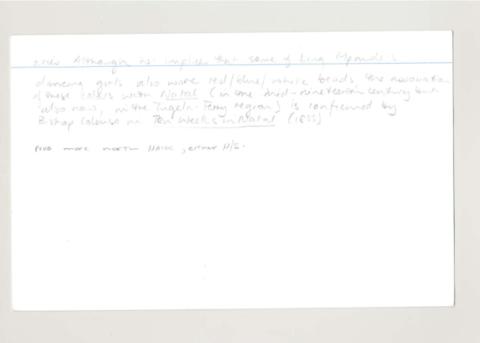 Although implies that some of King Mpande's
dancing girls also wore red/blue/white beads, the association
of these colors with Natal (in the mid-nineteenth century but
also now, in the Tugela-Ferry region) is confirmed by
Bishop Colenso in Ten Weeks in Natal (1855)
more north